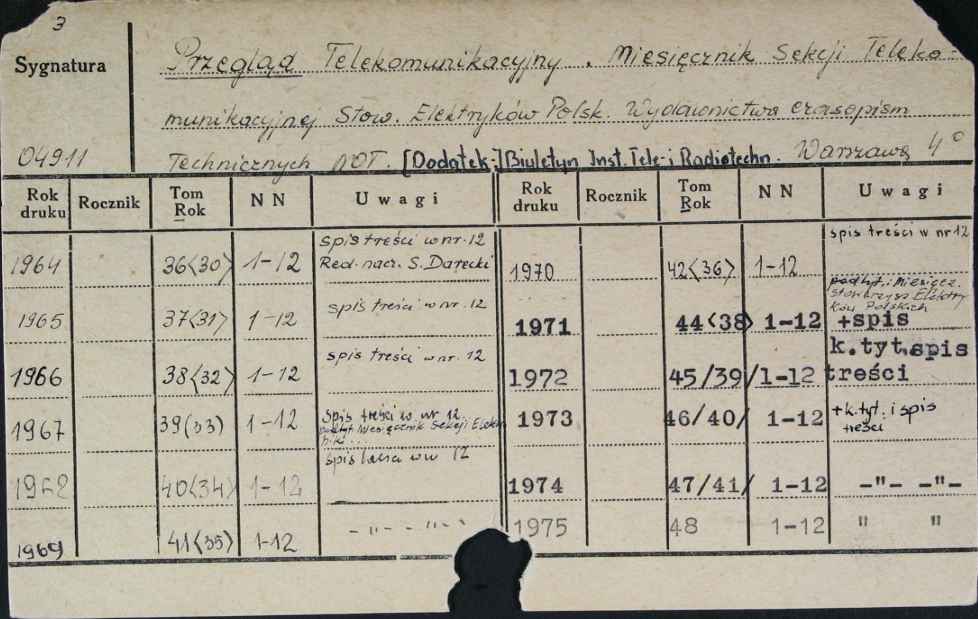 3
Sygnatura
04911
Przegląd Telekomunikacyjny. Miesięcznik Sekcji Teleko-
munikacyjnej Stow. Elektryków Polsk. Wydawnictwa czasopism
Technicznych NOT. [Dodatek:] Biuletyn Inst. Tele- i Radiotechn. Warszawa 4°
Rok druku Rocznik Tom Rok NN Uwagi
1964 36<30> 1-12 spis treści w nr. 12 Red. nacz. S. Darecki
1965 37<31> 1-12 spis treści w nr. 12
1966 38<32> 1-12 spis treści w nr. 12
1967 39(33) 1-12 spis treści w nr 12 podtyt. Miesięcznik Sekcji
1968 40<34> 1-12 spis w 12
1969 41<35> 1-12 -"- -"-
Rok druku Rocznik Tom Rok NN Uwagi
1970 42<36> 1-12 spis treści w nr 12
1971 44<38> 1-12 podtyt. Miesięcz. Stowarzysz. Elektryków Polskich +spis
1972 45/39/ 1-12 k.tyt. spis treści
1973 46/40/ 1-12 +k.tyt. i spis treści
1974 47/41/ 1-12 -"- -"-
1975 48 1-12 " "